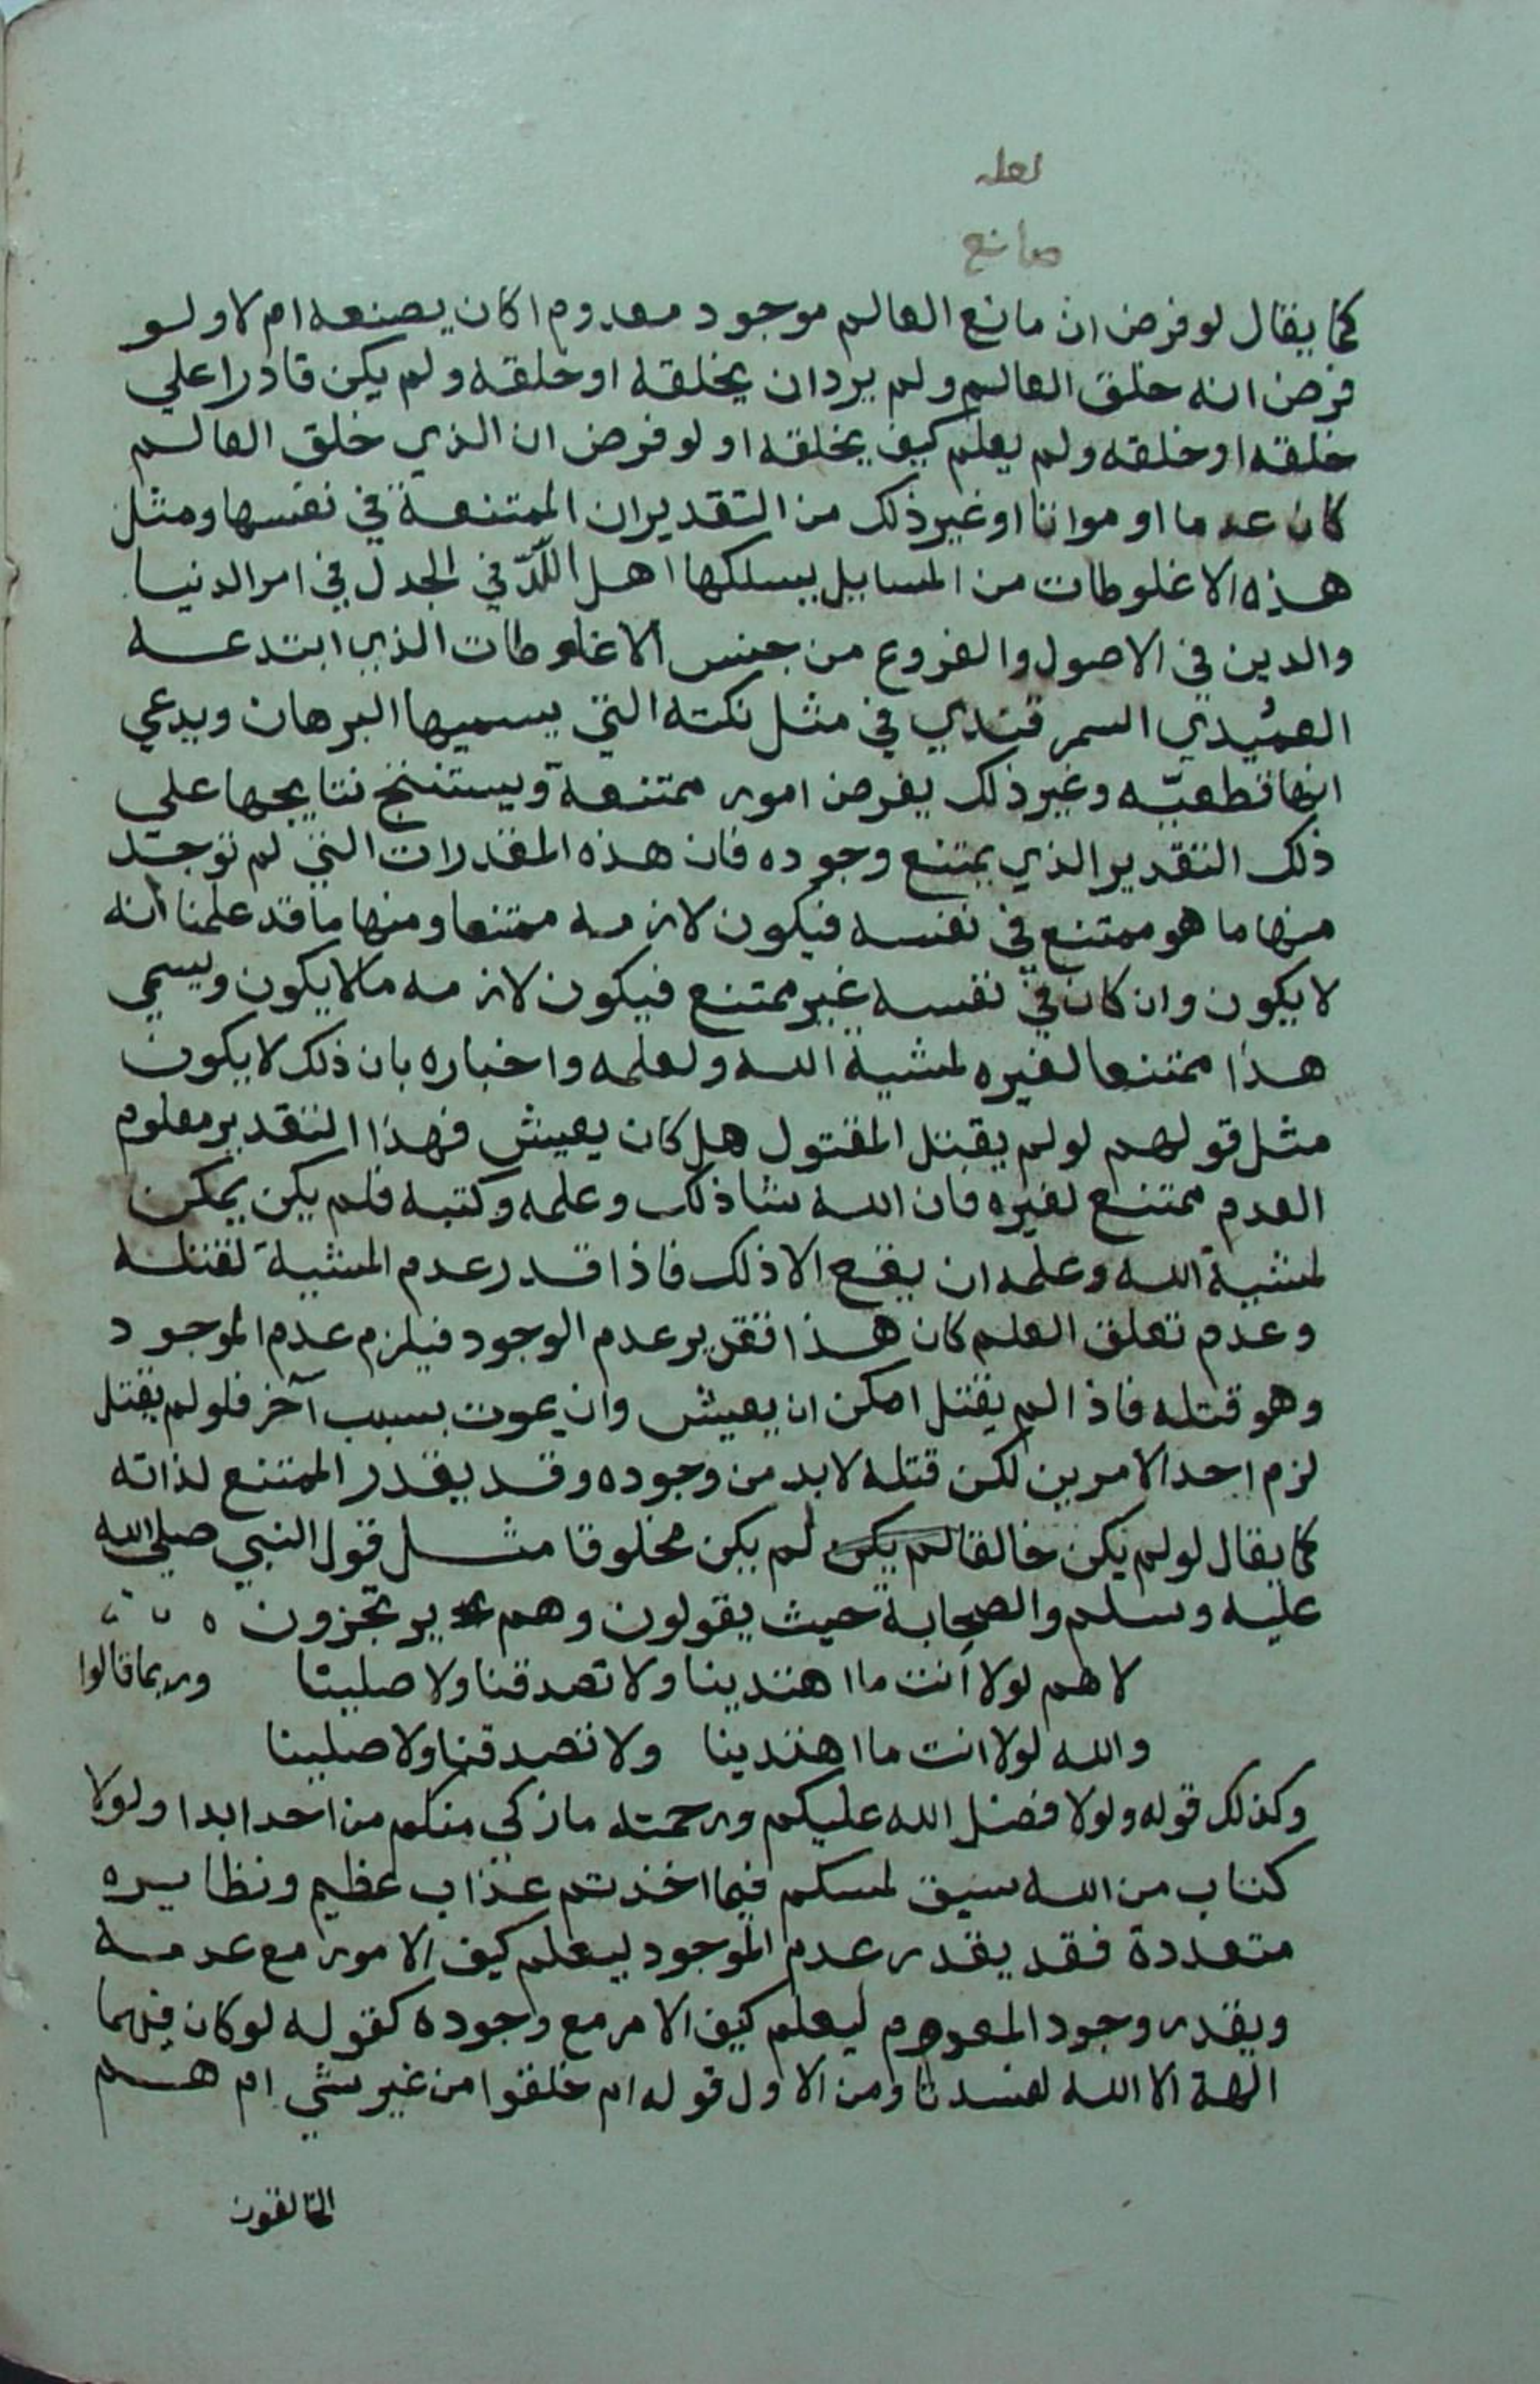 لعله
صانع
كما يقال لو فرض ان مانع العالم موجود معدوم اكان يصنعه ام لا ولو
فرض انه خلق العالم ولم يرد ان يخلقه او خلقه ولم يكن قادرا علي
خلقه او خلقه ولم يعلم كيف يخلقه او لو فرض ان الذي خلق العالم
كان عدما او مواتا او غير ذلك من التقديران الممتنعة في نفسها ومثل
هذه الاغلوطات من المسايل يسلكها اهل اللدّ في الجدل في امر الدنيا
والدين في الاصول والفروع من جنس الاغلوطات الذي ابتدعه
العميدي السمرقندي في مثل نكته التي يسميها البرهان ويدعي
انها قطعيّه وغير ذلك يفرض امور ممتنعة ويستنتج نتايجها علي
ذلك التقدير الذي يمتنع وجوده فان هذه المقدرات التي لم توجد
منها ما هو ممتنع في نفسه فيكون لازمه ممتنعا ومنها ما قد علمنا انه
لا يكون وان كان في نفسه غير ممتنع فيكون لازمه ما لا يكون ويسمي
هذا ممتنعا لغيره لمشية الله ولعلمه واخباره بان ذلك لا يكون
مثل قولهم لو لم يقتل المقتول هل كان يعيش فهذا التقدير معلوم
العدم ممتنع لغيره فان الله شا ذلك وعلمه وكتبه فلم يكن يمكن
لمشية الله وعلمه ان يقع الا ذلك فاذا قدر عدم المشية لقتله
وعدم تعلق العلم كان هذا تقدير عدم الوجود فيلزم عدم الموجود
وهو قتله فاذا لم يقتل امكن ان يعيش وان يموت بسبب آخر فلو لم يقتل
لزم احد الامرين لكن قتله لا بد من وجوده وقد يقدر الممتنع لذاته
كما يقال لو لم يكن خالقا لم يكن لم يكن مخلوقا مثل قول النبي صلي الله
عليه وسلم والصحابة حيث يقولون وهم يرتجزون ه
لاهم لولا انت ما اهتدينا ولا تصدقنا ولا صلينا وربما قالوا
والله لولا انت ما اهتدينا ولا تصدقنا ولا صلينا
وكذلك قوله ولولا فضل الله عليكم ورحمته ما زكي منكم من احد ابدا ولولا
كتاب من الله سبق لمسكم فيما اخذتم عذاب عظيم ونظايره
متعددة فقد يقدر عدم الموجود ليعلم كيف الامور مع عدمه
ويقدر وجود المعدوم ليعلم كيف الامر مع وجوده كقوله لو كان فيهما
الهة الا الله لفسدتا ومن الاول قوله ام خلقوا من غير شي ام هم
الخالقون